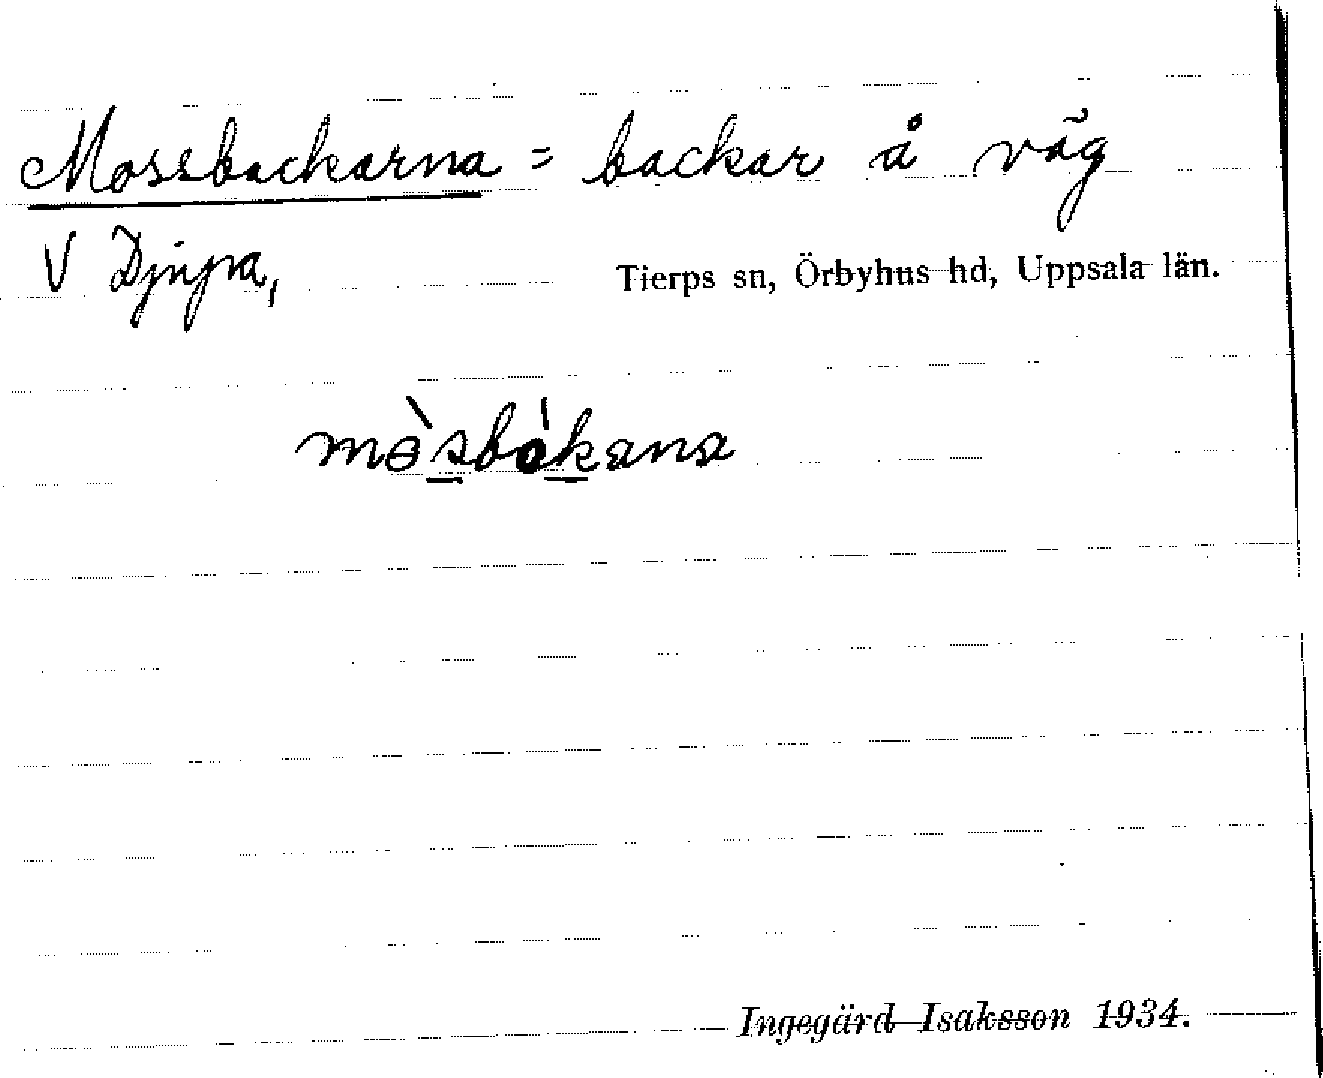 Mossbackarna = backar å väg
V Djupa,
Tierps sn, Örbyhus hd, Uppsala län.
mɵ̀sbákana
Ingegärd Isaksson 1934.